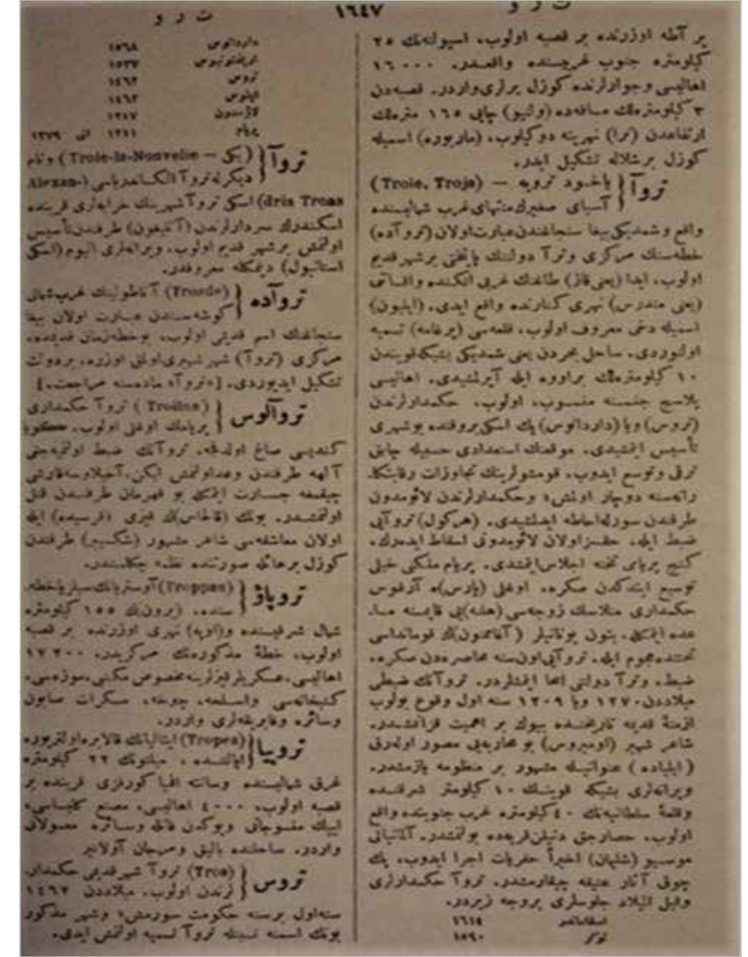 ت ر و
١٦٤٧
ت ر و
بر آطه اوزرنده بر قصبه اولوب، اسپولتهنك ٢٥
كيلومتره جنوب غربيسنده واقعدر. ١٦٠٠٠
اهاليسى وجوارلرنده كوزل يرلرى واردر. قصبه‌دن
٣ كيلومترهلك مسافه‌ده (ولينو) چايى ١٦٥ مترهلك
ارتفاعدن (نرا) نهرينه دوكيلوب، (مارموره) اسميله
كوزل بر شلاله تشكيل ايدر.
تروآ { ياخود ترويه — (Troie, Troja)
آسياى صغيرك منتهاى غرب شماليسنده
واقع وشمديكى بيغا سنجاغندن عبارت اولان (تروآده)
خطه‌سنك مركزى وتروآ دولتنك پايتختى بر شهر قديم
اولوب، ايدا (يعنى قاز) طاغنك غربى اتكنده و
(يعنى مندرس) نهرى كنارنده واقع ايدى. (ايليون)
اسميله دخى معروف اولوب، قلعه‌سى (پرغامه) تسميه
اولنوردى. ساحل بحردن يعنى شمديكى بشيكه قويندن
١٠ كيلومترهلك بر اووه ايله آيرلمشيدى. اهاليسى
پلاسج جنسنه منسوب اولوب، حكمدارلرندن
(تروس) ويا (داردانوس) پك اسكى بر وقتده بو شهرى
تأسيس ايتمشيدى. موقعنك استعدادى حسبيله چابق
ترقى وتوسع ايدوب، قومشولرينك تجاوزات
دوچار اولمش، وحكمدارلرندن لائومدون
طرفندن سورله احاطه ايدلمشيدى. (هركول) تروآيى
ضبط ايله، اولان لائومدونى اسقاط ايدهرك،
كنج پريامى تخته اجلاس ايتمشدى. پريام ملكنى خيلى
توسيع ايتدكدن صكره، اوغلى (پارس)، آرغوس
حكمدارى منلاسك زوجه‌سى (هلنه)يى
ايتمكله، بتون يونانيلر (آغاممنون)ك قومانداسى
تحتنده هجوم ايله، تروآيى اون سنه محاصره‌دن صكره،
ضبط، وتروآ دولتنى امحا ايتمشلردر. تروآنك ضبطى
ميلاددن ١٢٧٠ ويا ١٢٠٩ سنه اول وقوع بولوب
ازمنهٔ قديمه تاريخنده بيوك بر اهميت قزانمشدر.
شاعر شهير (اوميروس) بو محاربه‌يى مصور اولهرق
(ايلياده) عنوانيله مشهور بر منظومه يازمشدر.
ويرانه‌لرى بشيكه قوينك ١٠ كيلومتر شرقنده
وقلعهٔ سلطانيه‌نك ٤٠ كيلومتره غرب جنوبنده واقع
اولوب، حصارجق دنيلن قريه‌ده بولنمشدر. آلمانيالى
موسيو (شليمان) اخيراً حفريات اجرا ايدوب، پك
چوق آثار عتيقه چيقارمشدر. تروآ حكمدارلرى
وقبل الميلاد جلوسلرى بروجه زيردر.
اسقاماندر ١٦١٤
توكر ١٥٩٠
داردانوس ١٥٦٨
اريختونيوس ١٥٣٧
تروس ١٤٦٢
ايلوس ١٤٠٢
لائومدون ١٣٤٧
پريام ١٣١١ الى ١٢٧٩
تروآ { (يكى — Troie-la-Nouvelle) ونام
ديكرله تروآ الكساندرياسى (Alexan-
dria Troas) اسكى تروآ شهرينك خرابه‌لرى قربنده
اسكندرك سردارلرندن (آنتيغون) طرفندن تأسيس
اولنمش بر شهر قديم اولوب، ويرانه‌لرى اليوم (اسكى
استانبول) ديمكله معروفدر.
تروآده { (Troade) آناطولينك غرب شمال
كوشه‌سندن عبارت اولان بيغا
سنجاغنك اسم قديمى اولوب، بو خطه زمان قديمده،
مركزى (تروآ) شهر شهيرى اولمق اوزره، بر دولت
تشكيل ايديوردى. [«تروآ» ماده‌سنه مراجعت.]
تروآلوس { (Troilus) تروآ حكمدارى
پريامك اوغلى اولوب،
كنديسى صاغ اولدقجه، تروآنك ضبط اولنميه‌جغى
آلهه طرفندن وعد اولنمش ايكن، آخيلاوسه قارشى
چيقمغه جسارت ايتمكله بو قهرمان طرفندن قتل
اولنمشدر. بونك (قالخاس)ك قيزى (قرسيده) ايله
اولان معاشقه‌سى شاعر مشهور (شكسپير) طرفندن
كوزل بر هائله صورتنده نظمه چكلمشدر.
تروپاؤ { (Troppau) آوستريانك سيلزيا خطه‌
سنده، (برون)ك ١٥٥ كيلومتره
شمال شرقيسنده و(اوپه) نهرى اوزرنده بر قصبه
اولوب، خطهٔ مذكوره‌نك مركزيدر. ١٢٣٠٠
اهاليسى، مخصوص مكتبى، موزه‌سى،
كتبخانه‌سى واسلحه، چوخه، سكرات صابون
وسائره فابريقه‌لرى واردر.
تروپيا { (Tropea) ايتاليانك قالابره اولتريوره
ايالتنده، ميلتونك ٢٢ كيلومتره
غرق شماليسنده وسانته افميا كورفزى قربنده بر
قصبه اولوب، ٤٠٠٠ اهاليسى، مصنع كليساسى،
ايپك منسوجاتى ويوكدن فانله وسائره معمولاتى
واردر. ساحلنده باليق ومرجان آولانير.
تروس { (Tros) تروآ شهر قديمى حكمدار-
لرندن اولوب، ميلاددن ١٤٦٢
سنه اول برسنه حكومت سورمش، وشهر مذكور
بونك اسمنه نسبتله تروآ تسميه اولنمش ايدى.